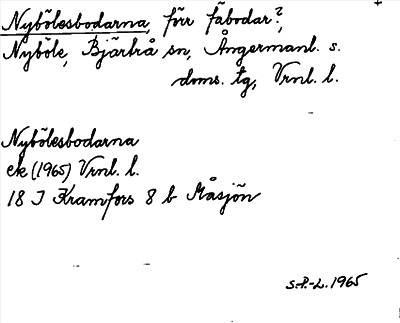 Nybölesbodarna, förr fäbodar?,
Nyböle, Bjärtrå sn, Ångermanl. s.
doms. tg, Vrnl. l.
Nybölesbodarna
ek (1965) Vrnl. l.
18 J Kramfors 8 b Måsjön
S.-P.-L. 1965